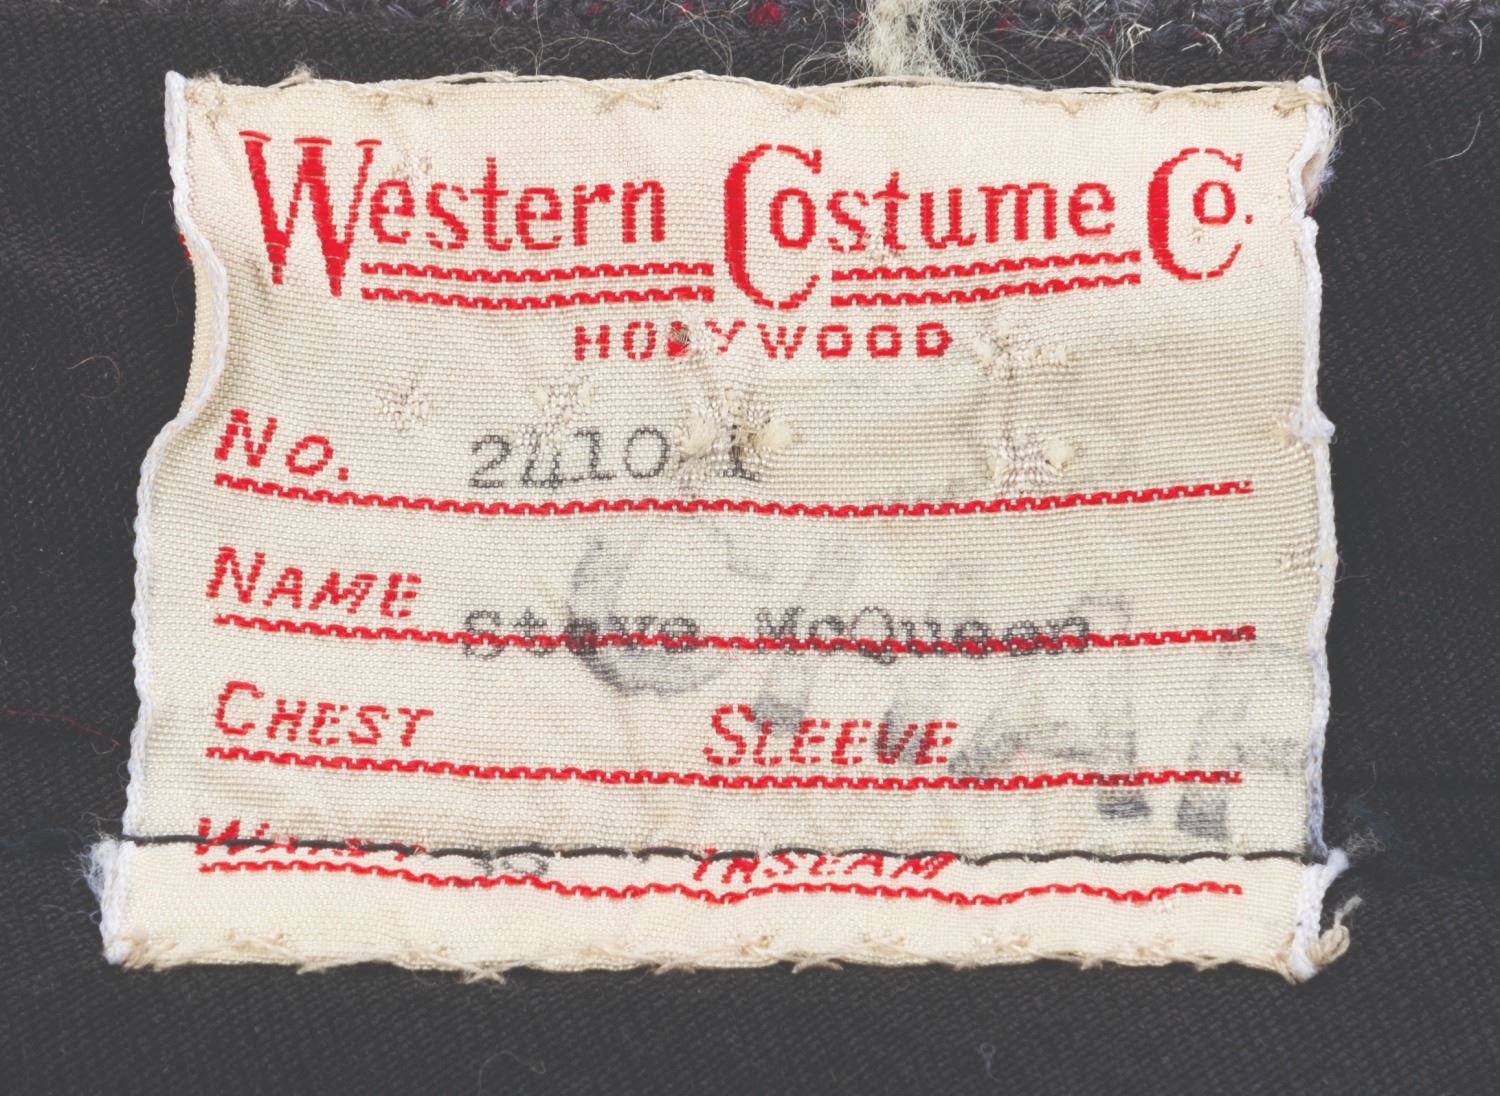 Western Costume Co.
HOLLYWOOD
NO. 2410 1
NAME Steve McQueen
CHEST SLEEVE
WAIST INSEAM